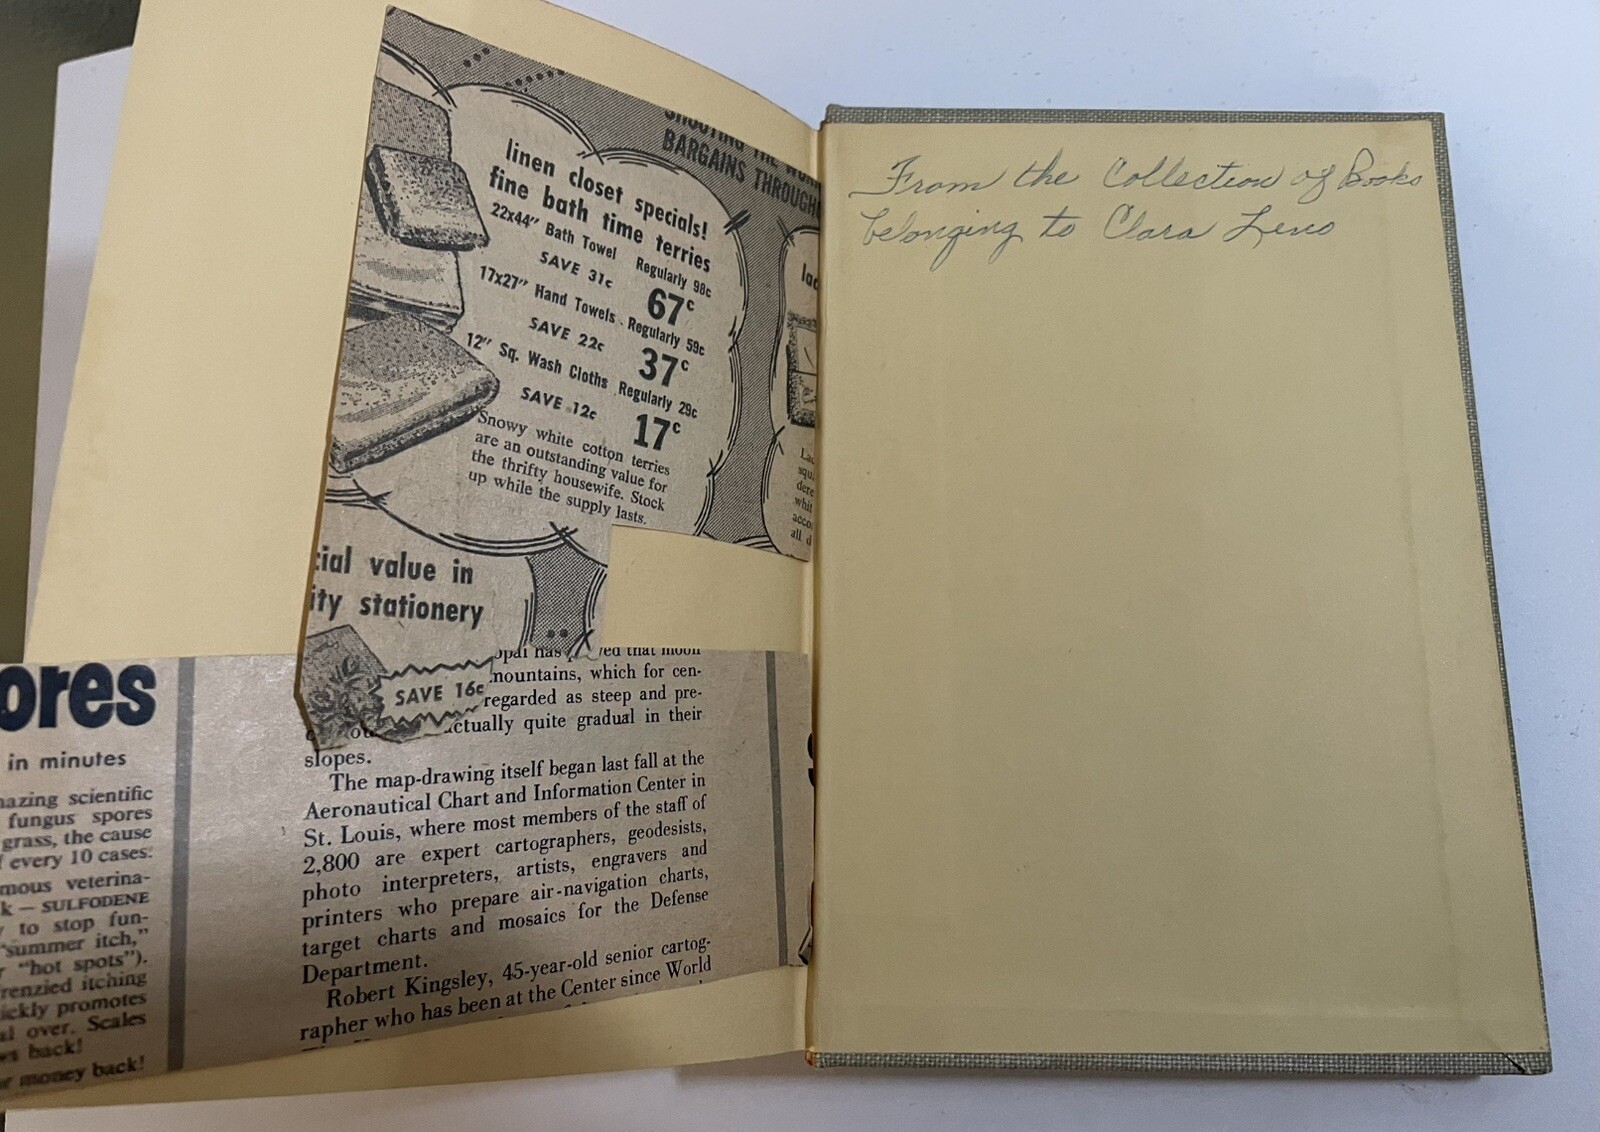 SHOOTING THE
BARGAINS THROUGH
linen closet specials!
fine bath time terries
22x44" Bath Towel Regularly 98c
SAVE 31c 67c
17x27" Hand Towels . Regularly 59c
SAVE 22c 37c
12" Sq. Wash Cloths Regularly 29c
SAVE 12c 17c
Snowy white cotton terries
are an outstanding value for
the thrifty housewife. Stock
up while the supply lasts.
cial value in
ity stationery
SAVE 16c
lac
La
squ
dere
whit
acco
all d
ores
in minutes
azing scientific
fungus spores
grass, the cause
f every 10 cases.
mous veterina-
k — SULFODENE
y to stop fun-
"summer itch,"
r "hot spots").
renzied itching
ickly promotes
al over. Scales
ws back!
or money back!
opal has ved that moon
mountains, which for cen-
regarded as steep and pre-
ctually quite gradual in their
slopes.
The map-drawing itself began last fall at the
Aeronautical Chart and Information Center in
St. Louis, where most members of the staff of
2,800 are expert cartographers, geodesists,
photo interpreters, artists, engravers and
printers who prepare air-navigation charts,
target charts and mosaics for the Defense
Department.
Robert Kingsley, 45-year-old senior cartog-
rapher who has been at the Center since World
From the Collection of Books
belonging to Clara Leno